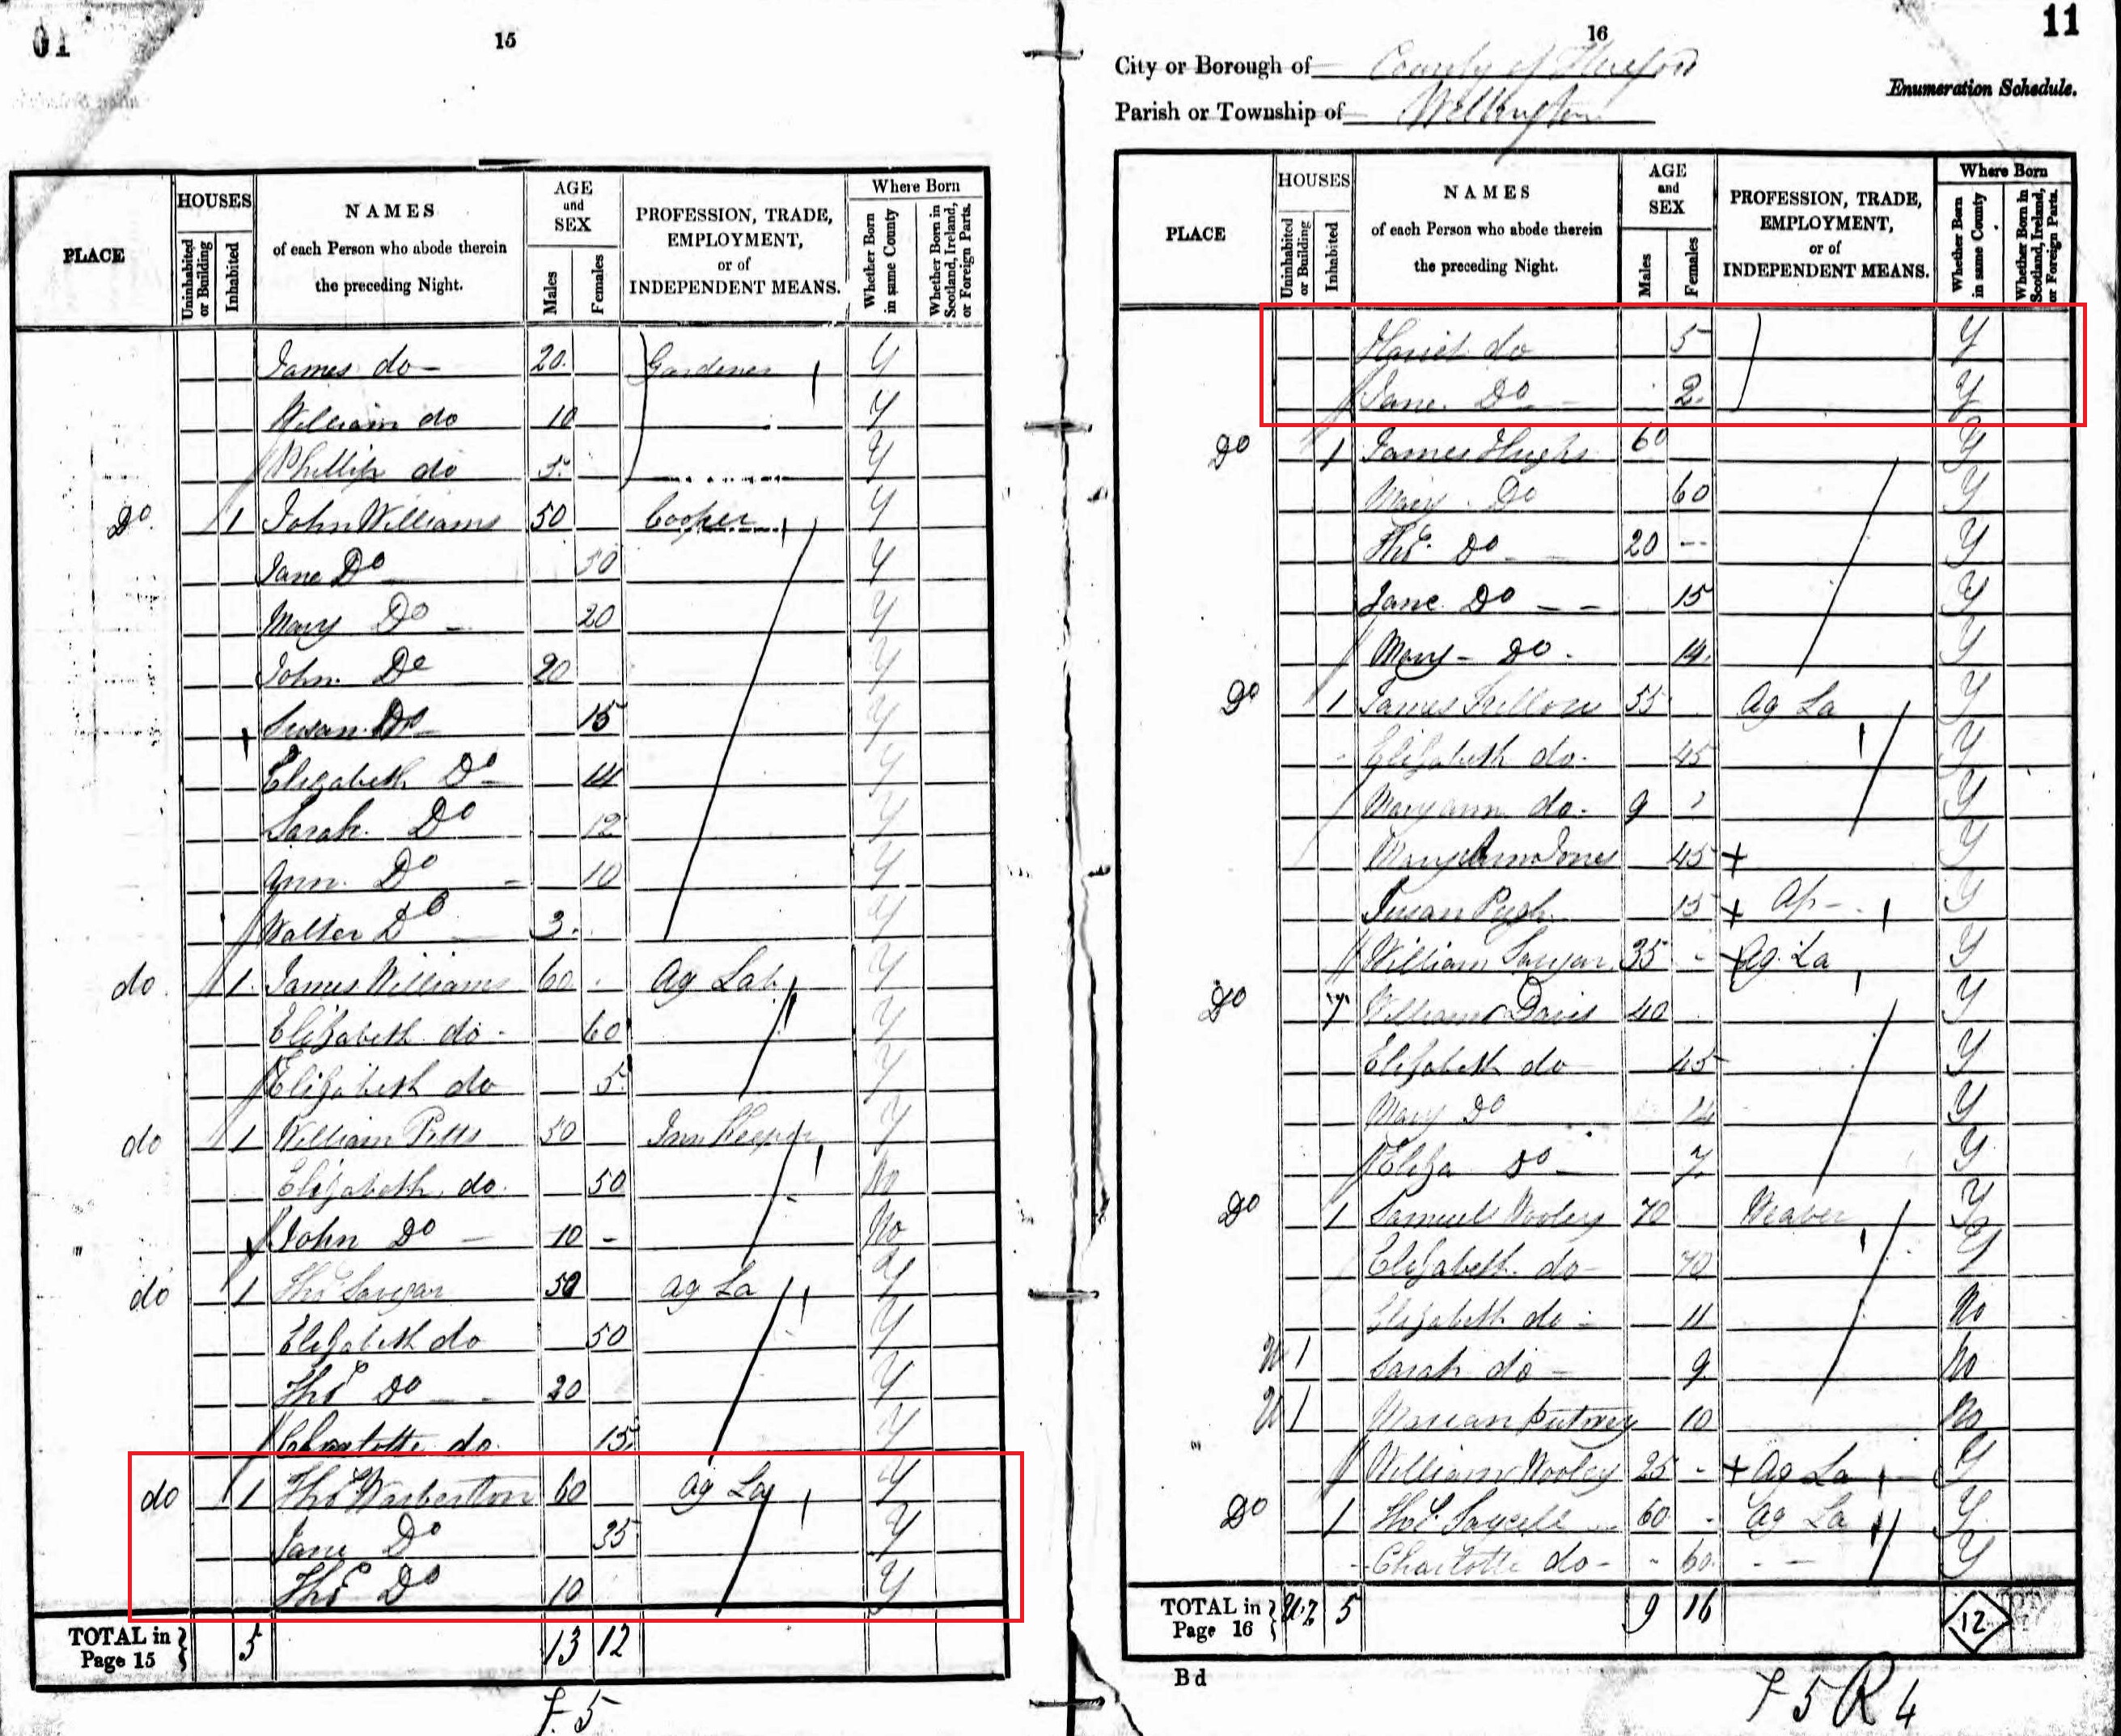 01
15
PLACE
HOUSES
Uninhabited or Building
Inhabited
NAMES
of each Person who abode therein
the preceding Night.
AGE
and
SEX
Males
Females
PROFESSION, TRADE,
EMPLOYMENT,
or of
INDEPENDENT MEANS.
Where Born
Whether Born in same County
Whether Born in Scotland, Ireland, or Foreign Parts.
James do 20 Gardener Y
William do 10 Y
Phillip do 5 Y
Do 1 John Williams 50 Cooper Y
Jane Do 50 Y
Mary Do 20 Y
John Do 20 Y
Susan Do 15 Y
Elizabeth Do 14 Y
Sarah Do 12 Y
Ann Do 10 Y
Walter Do 3 Y
do 1 James Williams 60 Ag Lab Y
Elizabeth do 60 Y
Elizabeth do 5 Y
do 1 William Pitts 50 Inn Keeper Y
Elizabeth do 50 No
John Do 10 No
do 1 Thos 50 Ag La Y
Elizabeth do 50 Y
Thos Do 20 Y
Charlotte do 15 Y
do 1 Thos Warberton 60 Ag La Y
Jane Do 35 Y
Thos Do 10 Y
TOTAL in Page 15 5 13 12
F. 5
16
11
City or Borough of County of Hereford
Parish or Township of Wellington
Enumeration Schedule.
PLACE
HOUSES
Uninhabited or Building
Inhabited
NAMES
of each Person who abode therein
the preceding Night.
AGE
and
SEX
Males
Females
PROFESSION, TRADE,
EMPLOYMENT,
or of
INDEPENDENT MEANS.
Where Born
Whether Born in same County
Whether Born in Scotland, Ireland, or Foreign Parts.
Hariet do 5 Y
Jane Do 2 Y
Do 1 James Hughs 60 Y
Mary Do 60 Y
Thos Do 20 Y
Jane Do 15 Y
Mary Do 14 Y
Do 1 James 55 Ag La Y
Elizabeth do 45 Y
Maryann do 9 Y
Mary Ann Jones 45 + Y
Susan Pugh 15 + Ap Y
William 35 + Ag La Y
Do 1 William Davis 40 Y
Elizabeth do 45 Y
Mary Do 14 Y
Eliza Do 7 Y
Do 1 Samuel Wooley 70 Weaver Y
Elizabeth do 70 Y
Elizabeth do 11 No
U 1 Sarah do 9 No
U 1 10 No
William Wooley 25 + Ag La Y
Do 1 Thos 60 Ag La Y
Charlotte do 60 Y
TOTAL in Page 16 U.2 5 9 16 12
Bd
F 5 R 4